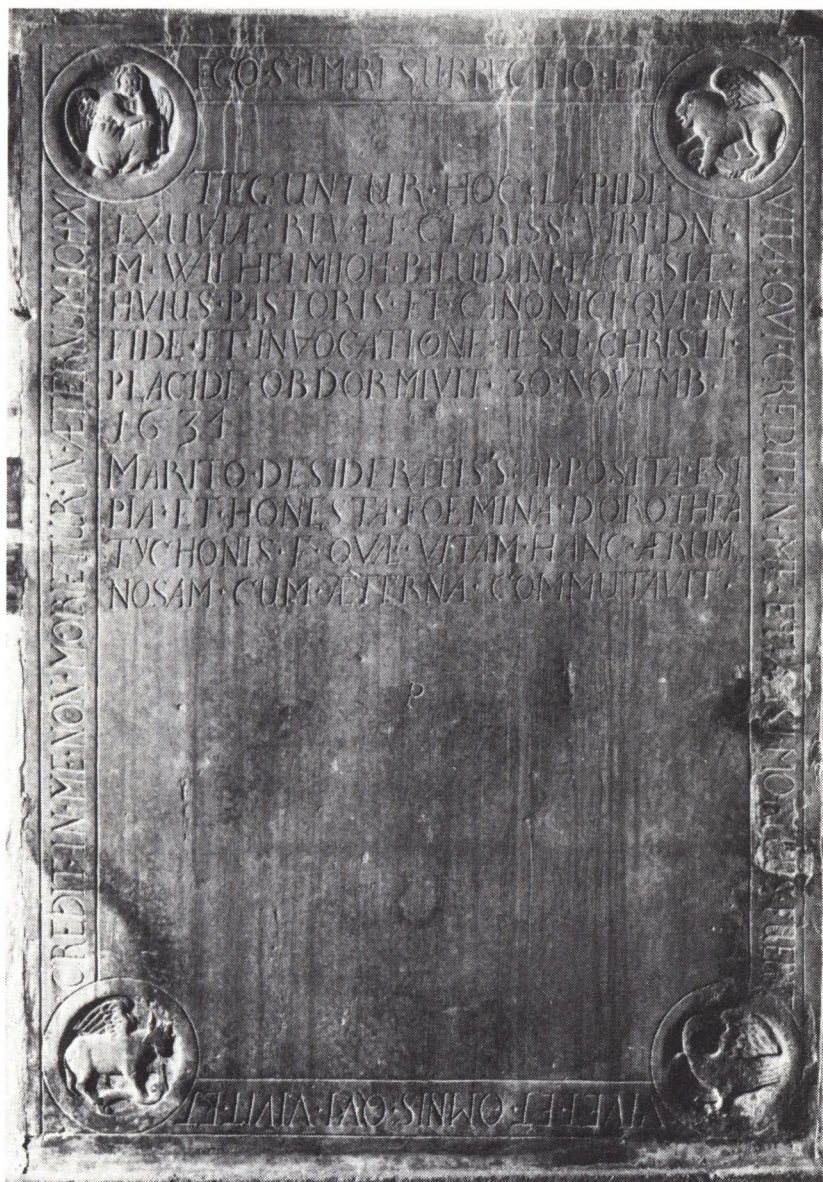 EGO·SUM·RESURRECTIO·ET
VITA·QVI·CREDIT·IN·ME·ETIA·SI·MORTUUS·FUERIT
VIVET·ET·OMNIS·QVI·VIVIT·ET
CREDIT·IN·ME·NON·MORIETUR·IN·ÆTERNUM·IOH·XI
TEGUNTUR·HOC·LAPIDE·
EXUVIÆ·REV·ET·CLARISS·VIRI·DN·
M·WILHELMI·IOH·PALUDANI·ECCLESIÆ
HVIUS·PASTORIS·ET·CANONICI·QVI·IN
FIDE·ET·INVOCATIONE·IESU·CHRISTI·
PLACIDE·OBDORMIVIT·30·NOVEMB·
1634
MARITO·DESIDERATISS·APPOSITA·EST
PIA·ET·HONESTA·FOEMINA·DOROTHEA
TYCHONIS·F·QVÆ·VITAM·HANC·ÆRUM
NOSAM·CUM·ÆTERNA·COMMUTAVIT·
P